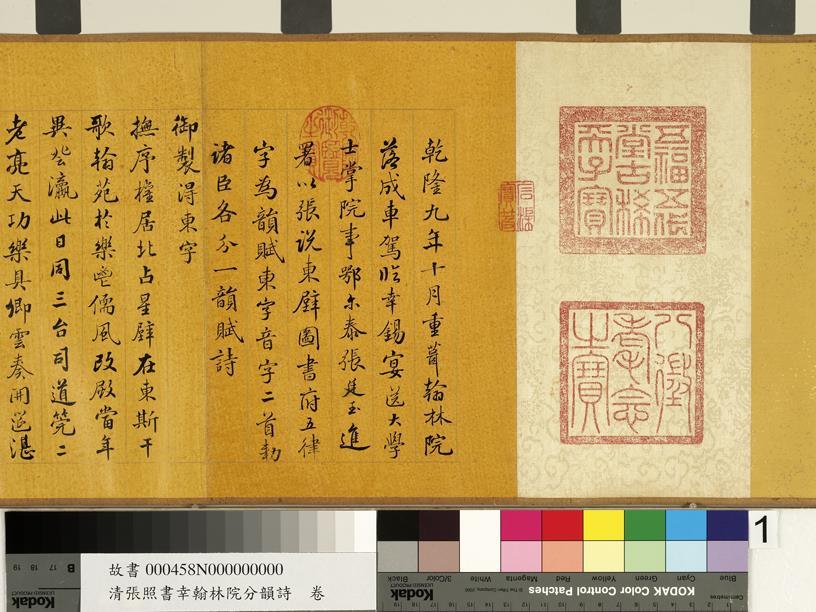 五福五代
堂古稀天
子寶
八徵
耄念
之寶
乾隆九年十月重葺翰林院
落成車駕臨幸錫宴送大學
士掌院事鄂尔泰張廷玉進
署以張説東壁圖書府五律
字為韻賦東字音字二首勅
諸臣各分一韻賦詩
御製得東字
撫序權居北占星壁在東斯干
歌翰苑於樂鬯儒風改殿當年
異登瀛此日同三台司道筦二
老亮天功樂具卿雲奏開筵湛
故書 000458N000000000
清張照書幸翰林院分韻詩 卷
1
B 17 18 19
Kodak
LICENSED PRODUCT
KODAK Color Control Patches
Blue Cyan Green Yellow Red Magenta White 3/Color Black
Centimetres